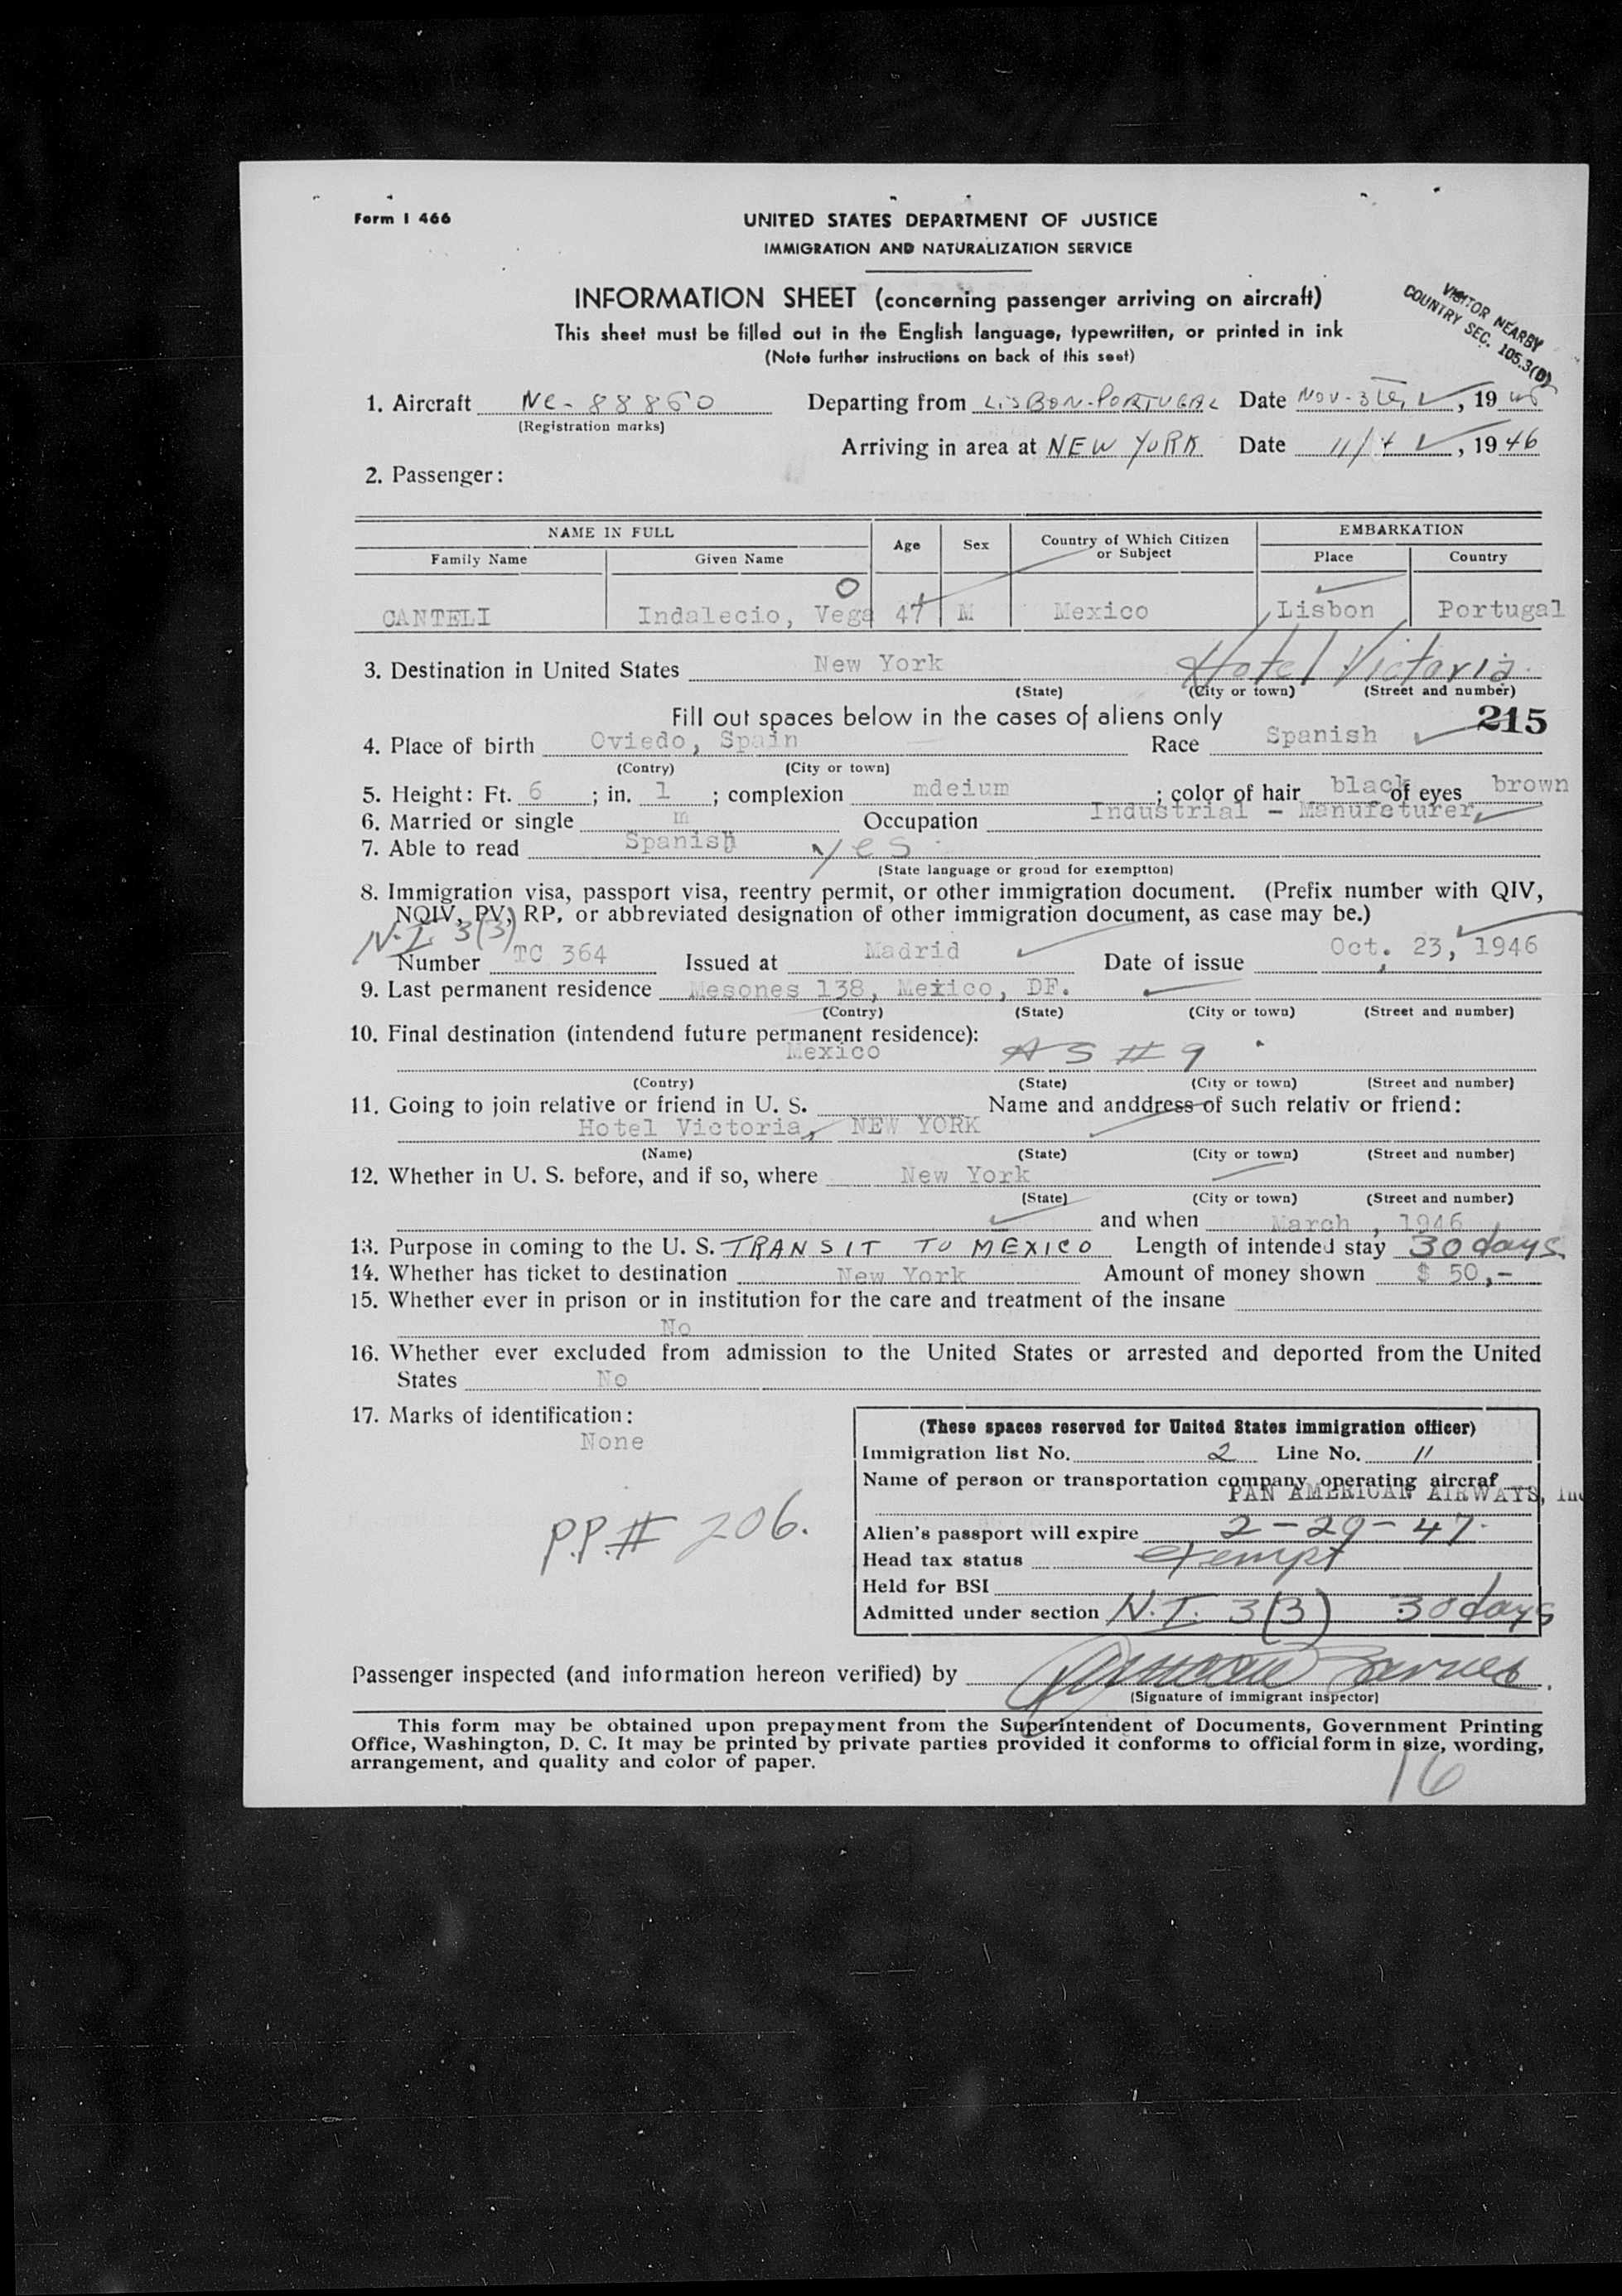 Form I 466
UNITED STATES DEPARTMENT OF JUSTICE
IMMIGRATION AND NATURALIZATION SERVICE
INFORMATION SHEET (concerning passenger arriving on aircraft)
This sheet must be filled out in the English language, typewritten, or printed in ink
(Note further instructions on back of this seet)
VISITOR NEARBY
COUNTRY SEC. 105.3(D)
1. Aircraft NC-88860 Departing from LISBON-PORTUGAL Date NOV-3, 19
(Registration marks)
Arriving in area at NEW YORK Date 11/4, 1946
2. Passenger:
NAME IN FULL Age Sex Country of Which Citizen or Subject EMBARKATION
Family Name Given Name Place Country
CANTELI Indalecio, Vega 47 M Mexico Lisbon Portugal
3. Destination in United States New York Hotel Victoria
(State) (City or town) (Street and number)
Fill out spaces below in the cases of aliens only 215
4. Place of birth Oviedo, Spain Race Spanish
(Contry) (City or town)
5. Height: Ft. 6 ; in. 1 ; complexion mdeium ; color of hair black of eyes brown
6. Married or single m Occupation Industrial - Manufcturer
7. Able to read Spanish yes
(State language or groud for exemption)
8. Immigration visa, passport visa, reentry permit, or other immigration document. (Prefix number with QIV,
NQIV, PV, RP, or abbreviated designation of other immigration document, as case may be.)
N.I. 3(3)
Number TC 364 Issued at Madrid Date of issue Oct. 23, 1946
9. Last permanent residence Mesones 138, Mexico, DF.
(Contry) (State) (City or town) (Street and number)
10. Final destination (intendend future permanent residence):
Mexico AS #9
(Contry) (State) (City or town) (Street and number)
11. Going to join relative or friend in U. S. Name and anddress of such relativ or friend:
Hotel Victoria, NEW YORK
(Name) (State) (City or town) (Street and number)
12. Whether in U. S. before, and if so, where New York
(State) (City or town) (Street and number)
and when March , 1946
13. Purpose in coming to the U. S. TRANSIT TO MEXICO Length of intended stay 30 days
14. Whether has ticket to destination New York Amount of money shown $ 50,-
15. Whether ever in prison or in institution for the care and treatment of the insane
No
16. Whether ever excluded from admission to the United States or arrested and deported from the United
States No
17. Marks of identification:
None
P.P.# 206.
(These spaces reserved for United States immigration officer)
Immigration list No. 2 Line No. 11
Name of person or transportation company operating aircraf
PAN AMERICAN AIRWAYS, Inc
Alien's passport will expire 2-29-47
Head tax status exempt
Held for BSI
Admitted under section N.I. 3(3) 30 days
Passenger inspected (and information hereon verified) by
(Signature of immigrant inspector)
This form may be obtained upon prepayment from the Superintendent of Documents, Government Printing
Office, Washington, D. C. It may be printed by private parties provided it conforms to official form in size, wording,
arrangement, and quality and color of paper.
16